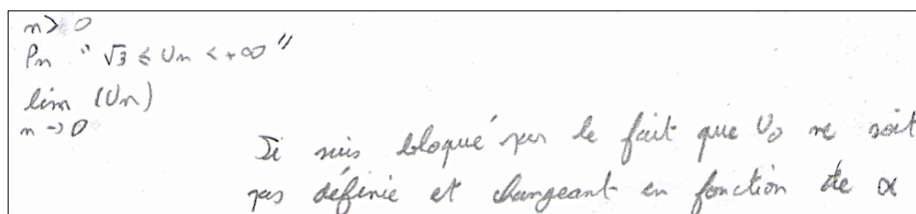 n > 0
Pn " √3 ≤ Un < +∞ "
lim (Un)
n → 0
Si suis bloqué par le fait que U0 ne soit
pas définie et changeant en fonction de α